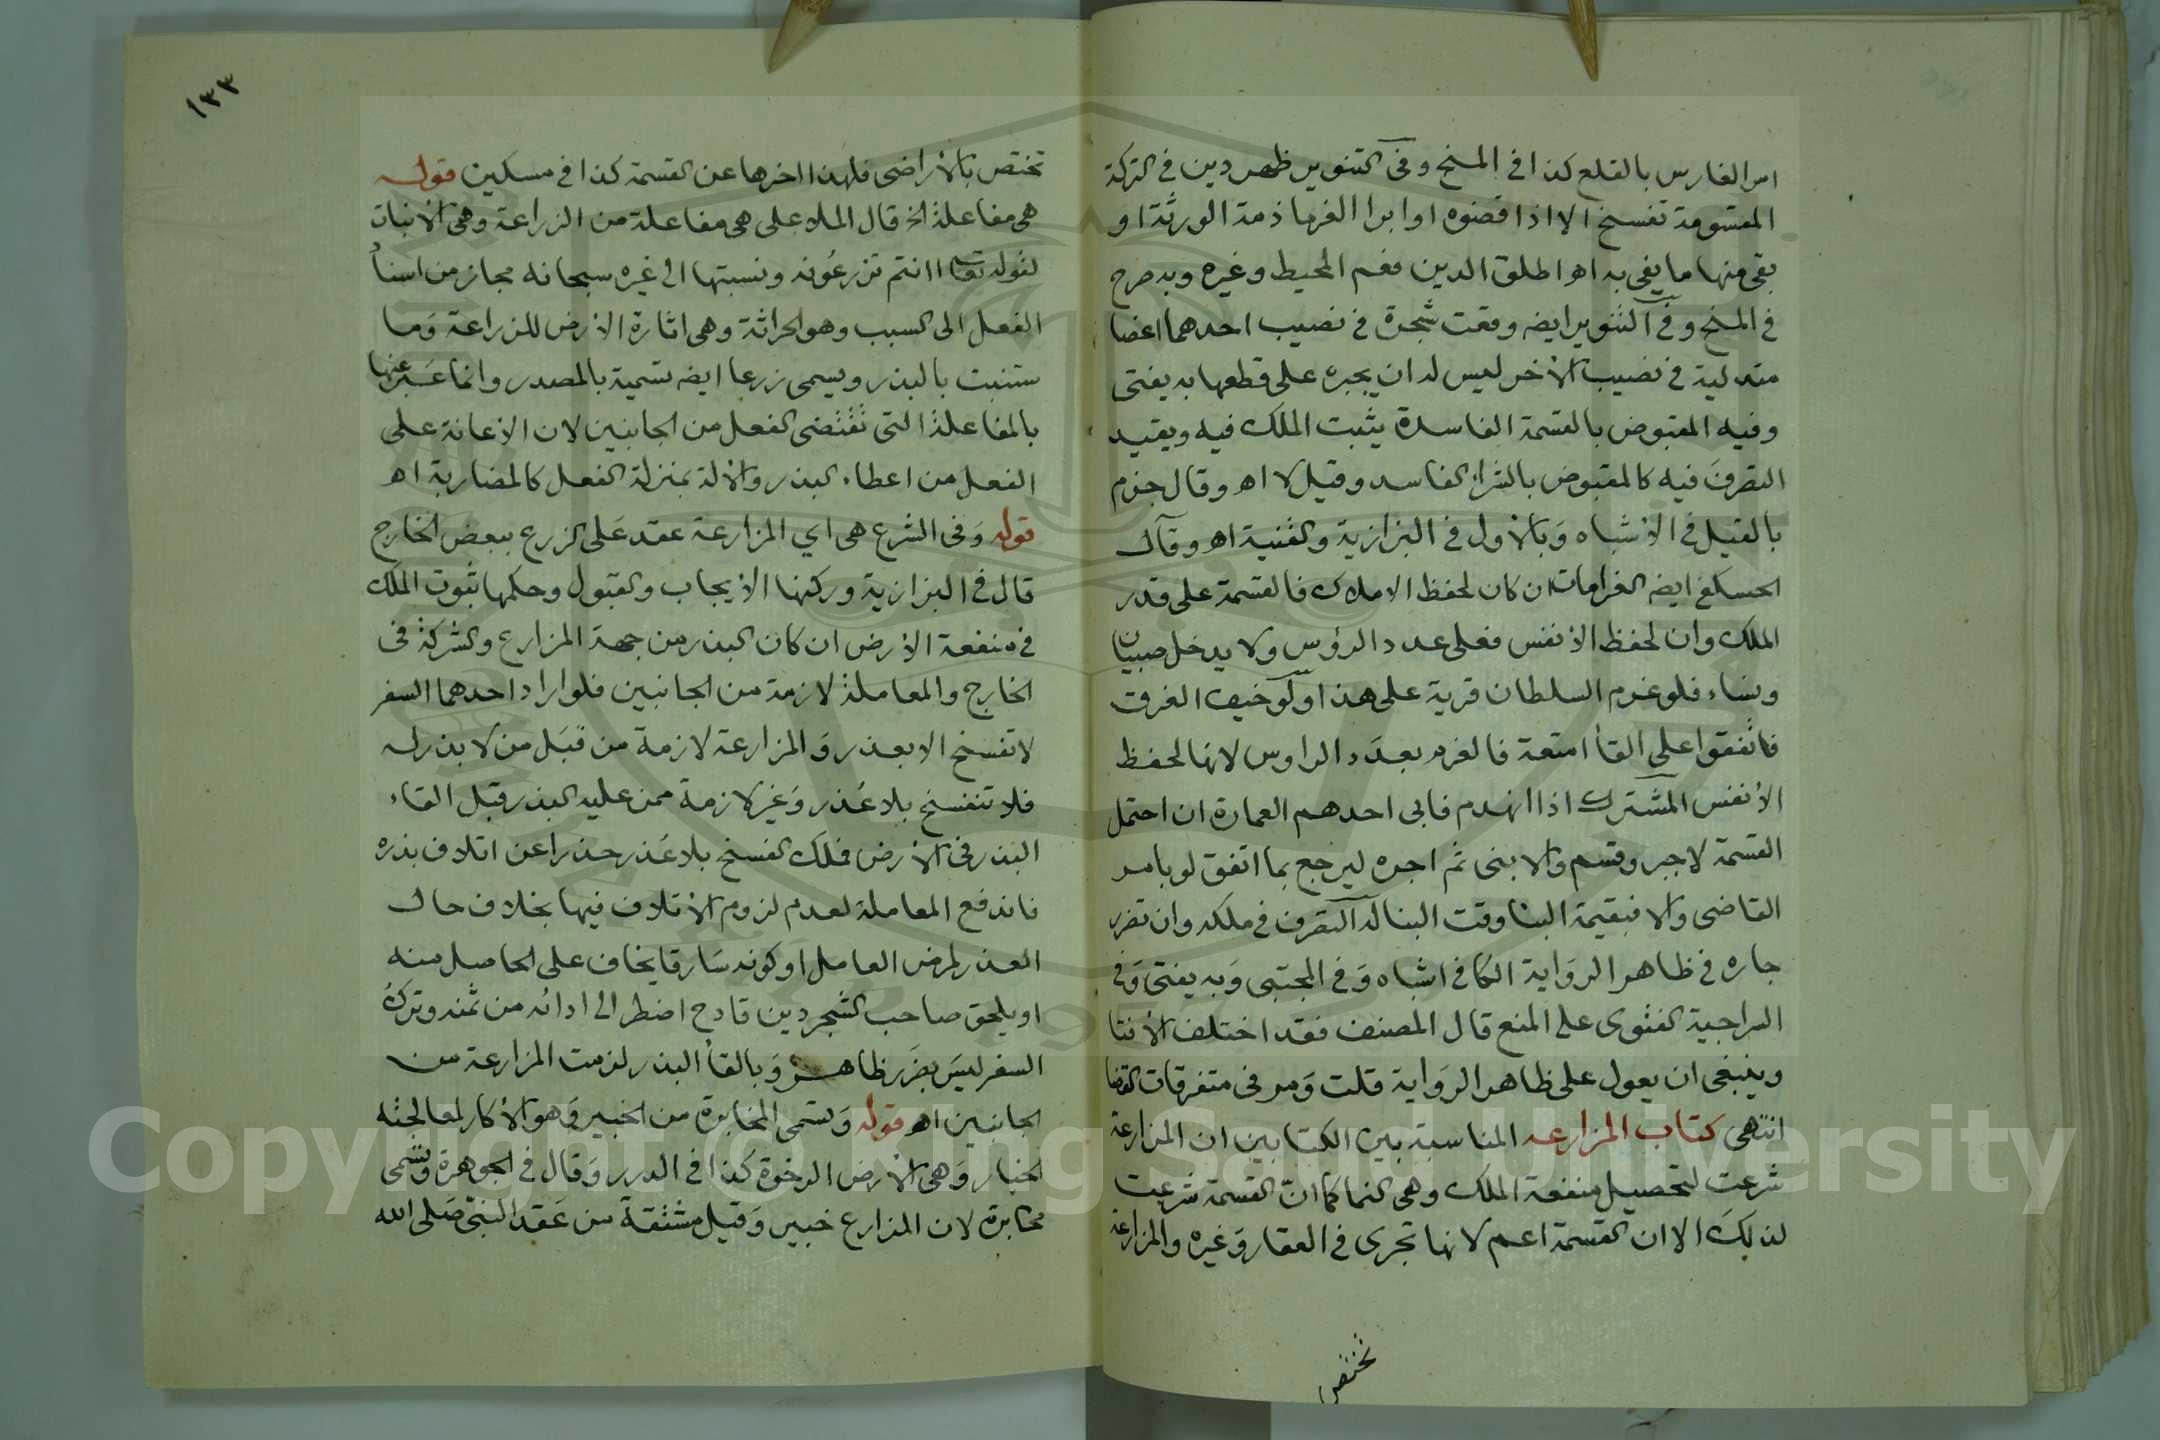 امر الغارس بالقلع كذا في المنح وفي التنوير ظهر دين في التركة
المقسومة تفسخ الا اذا قضوه او ابرا الغرما ذمة الورثة او
بقى منها ما يفى به اه اطلق الدين فعم المحيط وغيره وبه صرح
في المنح وفي التنوير ايضه وقعت شجرة في نصيب احدهما اغضا
متدلية في نصيب الاخر ليس له ان يجبره على قطعها به يفتى
وفيه المقبوض بالقسمة الفاسدة يثبت الملك فيه ويفيد
التصرف فيه كالمقبوض بالشراء الفاسد وقيل لا اه وقال جزم
بالقيل في الاشباه وبالاول في البزازية والقنية اه وقال
الحسكفي ايضه الغرامات ان كان لحفظ الاملاك فالقسمة على قدر
الملك وان لحفظ الانفس فعلى عدد الرؤس ولا يدخل صبيان
ونساء فلو غرم السلطان قرية على هذا ولو خيف الغرق
فاتفقوا على القاء امتعة فالغرم بعدد الراوس لانها لحفظ
الانفس المشترك اذا انهدم فابى احدهم العمارة ان احتمل
القسمة لا جبر وقسم والا بنى ثم اجره ليرجع بما اتفق لو بامر
القاضى والا فبقيمة البنا وقت البنا له التصرف في ملكه وان تضرر
جاره في ظاهر الرواية الكل في اشباه وفي المجتبى وبه يفتى وفي
السراجية الفتوى على المنع قال المصنف فقد اختلف الافتا
وينبغى ان يعول على ظاهر الرواية قلت ومر في متفرقات القضا
انتهى كتاب المزارعه المناسبة بين الكتابين ان المزارعة
شرعت لتحصيل منفعة الملك وهى النما كما ان القسمة شرعت
لذلك الا ان القسمة اعم لانها تجرى في العقار وغيره والمزارعة
تختص
١٣٣
تختص بالاراضى فلهذا اخرها عن القسمة كذا في مسكين قوله
هى مفاعلة الخ قال الملا على هى مفاعلة من الزراعة وهى الانبات
لقوله تعالى اانتم تزرعونه ونسبتها الى غيره سبحانه مجاز من اسناد
الفعل الى السبب وهو الحراثة وهى اثارة الارض للزراعة وما
ستنبت بالبذر ويسمى زرعا ايضه تسمية بالمصدر وانما عبر عنها
بالمفاعلة التى تقتضى الفعل من الجانبين لان الاعانة على
الفعل من اعطاء البذر والالة بمنزلة الفعل كالمضاربة اه
قوله وفى الشرع هى اي المزارعة عقد على الزرع ببعض الخارج
قال في البزازية وركنها الايجاب والقبول وحكمها ثبوت الملك
في منفعة الارض ان كان البذر من جهة المزارع والشركة فى
الخارج والمعاملة لازمة من الجانبين فلو اراد احدهما السفر
لا تفسخ الا بعذر والمزارعة لازمة من قبل من لا بذر له
فلا تنفسخ بلا عذر وغير لازمة ممن عليه البذر قبل القاء
البذر فى الارض فملك الفسخ بلا عذر حذرا عن اتلاف بذره
فاندفع المعاملة لعدم لزوم الاتلاف فيها بخلاف حال
العذر لمرض العامل او كونه سارقا يخاف على الحاصل منه
او يلحق صاحب الشجر دين قادح اضطر الى ادائه من ثمنه وترك
السفر ليس بضرر ظاهر وبالقاء البذر لزمت المزارعة من
الجانبين اه قوله وتسمى المخابرة من الخبير وهو الاكار لمعالجته
الخبار وهى الارض الرخوة كذا في الدرر وقال في الجوهرة وتسمى
مخابرة لان المزارع خبير وقيل مشتقة من عقد النبى صلى الله
Copyright © King Saud University